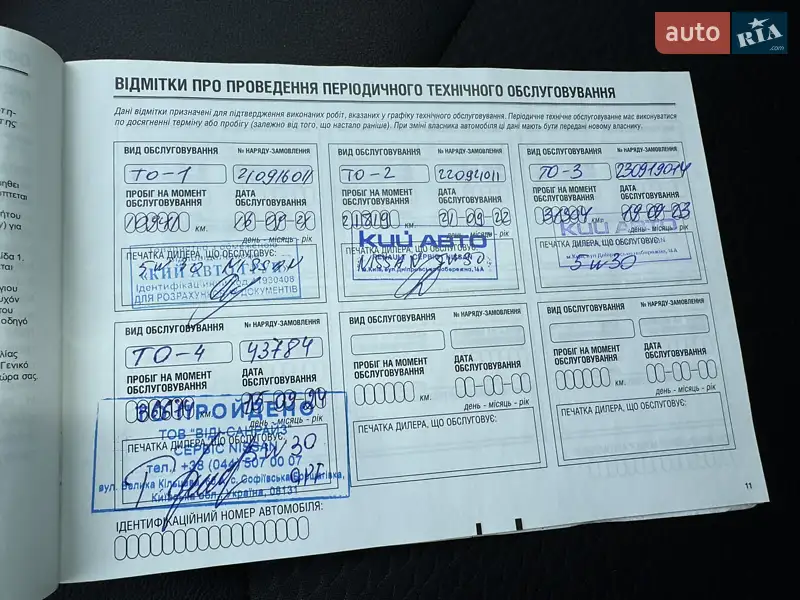 auto RIA.com
ВІДМІТКИ ПРО ПРОВЕДЕННЯ ПЕРІОДИЧНОГО ТЕХНІЧНОГО ОБСЛУГОВУВАННЯ
Дані відмітки призначені для підтвердження виконаних робіт, вказаних у графіку технічного обслуговування. Періодичне технічне обслуговування має виконуватися
по досягненні терміну або пробігу (залежно від того, що настало раніше). При зміні власника автомобіля ці дані мають бути передані новому власнику.
ВИД ОБСЛУГОВУВАННЯ № НАРЯДУ-ЗАМОВЛЕННЯ
ТО-1 210916011
ПРОБІГ НА МОМЕНТ ОБСЛУГОВУВАННЯ ДАТА ОБСЛУГОВУВАННЯ
км. 16-09-21
день - місяць - рік
ПЕЧАТКА ДИЛЕРА, ЩО ОБСЛУГОВУЄ:
5w30 Nissan
ДЛЯ РОЗРАХУНКОВИХ ДОКУМЕНТІВ
ВИД ОБСЛУГОВУВАННЯ № НАРЯДУ-ЗАМОВЛЕННЯ
ТО-2 22094011
ПРОБІГ НА МОМЕНТ ОБСЛУГОВУВАННЯ ДАТА ОБСЛУГОВУВАННЯ
21819 км. 21-09-22
день - місяць - рік
КИЙ АВТО
ПЕЧАТКА ДИЛЕРА, ЩО ОБСЛУГОВУЄ:
RENAULT СЕРВІС NISSAN
Nissan 5w30
ВИД ОБСЛУГОВУВАННЯ № НАРЯДУ-ЗАМОВЛЕННЯ
ТО-3 230919014
ПРОБІГ НА МОМЕНТ ОБСЛУГОВУВАННЯ ДАТА ОБСЛУГОВУВАННЯ
31904 км. 19-09-23
день - місяць - рік
КИЙ АВТО
ПЕЧАТКА ДИЛЕРА, ЩО ОБСЛУГОВУЄ:
5w30
ВИД ОБСЛУГОВУВАННЯ № НАРЯДУ-ЗАМОВЛЕННЯ
ТО-4 43784
ПРОБІГ НА МОМЕНТ ОБСЛУГОВУВАННЯ ДАТА ОБСЛУГОВУВАННЯ
км. -09-24
день - місяць - рік
ПРОЙДЕНО
ТОВ "ВІДІ-САНРАЙЗ"
ПЕЧАТКА ДИЛЕРА, ЩО ОБСЛУГОВУЄ:
СЕРВІС NISSAN
5w30
тел.: +38 (044) 507 00 07
вул. Велика Кільцева, с. Софіївська Борщагівка,
Київська обл., Україна, 08131
ВИД ОБСЛУГОВУВАННЯ № НАРЯДУ-ЗАМОВЛЕННЯ
ПРОБІГ НА МОМЕНТ ОБСЛУГОВУВАННЯ ДАТА ОБСЛУГОВУВАННЯ
км.
день - місяць - рік
ПЕЧАТКА ДИЛЕРА, ЩО ОБСЛУГОВУЄ:
ВИД ОБСЛУГОВУВАННЯ № НАРЯДУ-ЗАМОВЛЕННЯ
ПРОБІГ НА МОМЕНТ ОБСЛУГОВУВАННЯ ДАТА ОБСЛУГОВУВАННЯ
км.
день - місяць - рік
ПЕЧАТКА ДИЛЕРА, ЩО ОБСЛУГОВУЄ:
ІДЕНТИФІКАЦІЙНИЙ НОМЕР АВТОМОБІЛЯ:
11